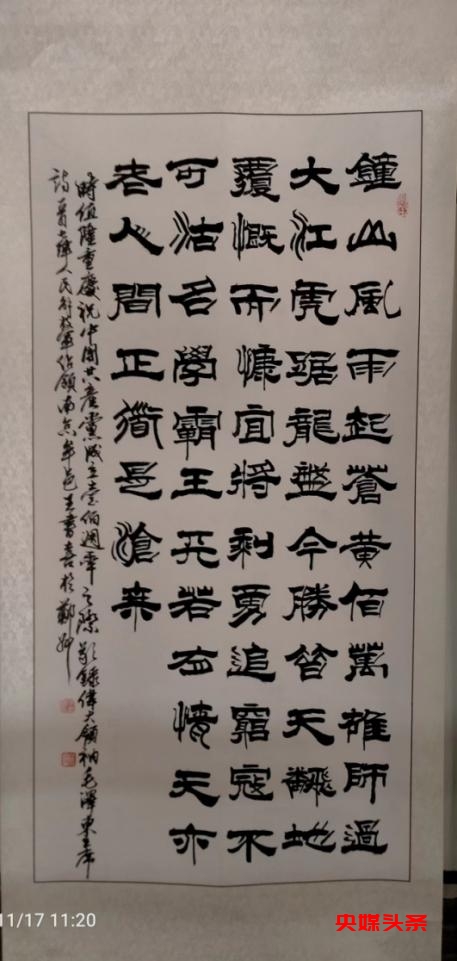 鐘山風雨起蒼黄佰萬雄師過
大江虎踞龍盤今勝昔天翻地
覆慨而慷宜將剩勇追窮寇不
可沽名學霸王天若有情天亦
老人間正道是滄桒
時值隆重慶祝中國共產黨成立壹佰週年之際敬錄偉大領袖毛澤東主席
詩一首七律人民解放軍佔領南京牟邑王書喜於鄭州
11/17 11:20
央媒头条